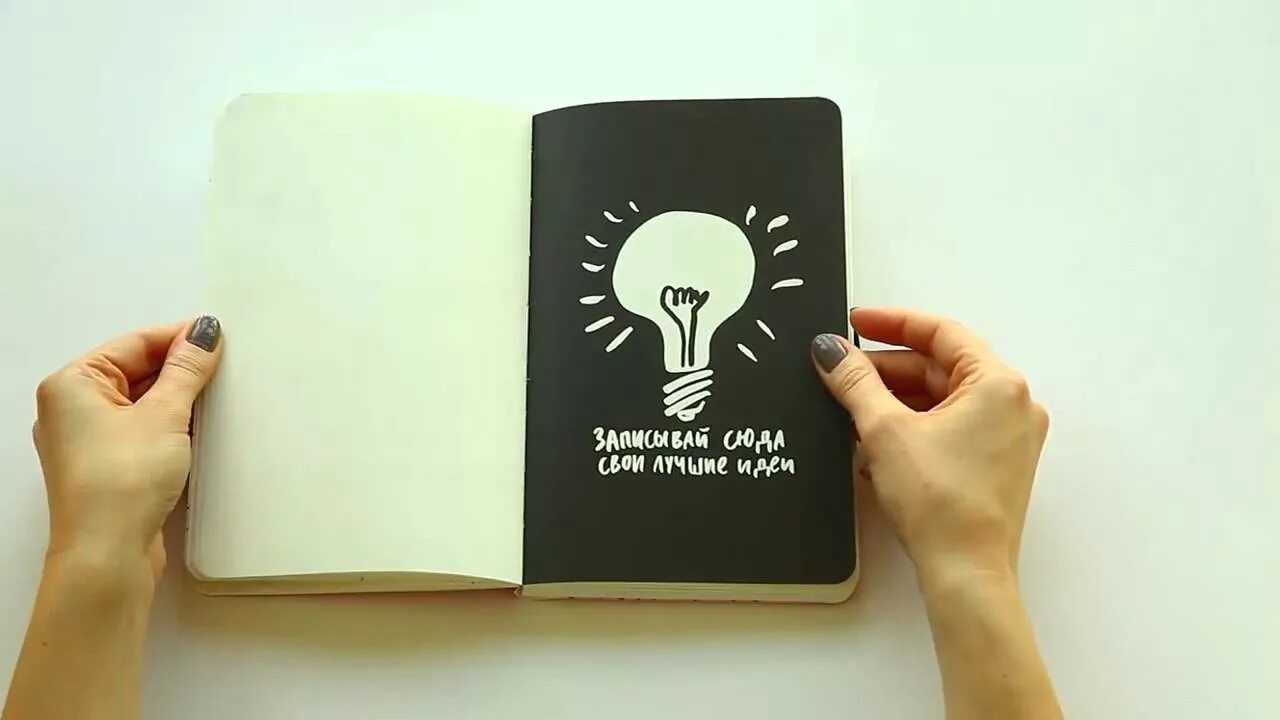 Записывай сюда
свои лучшие идеи